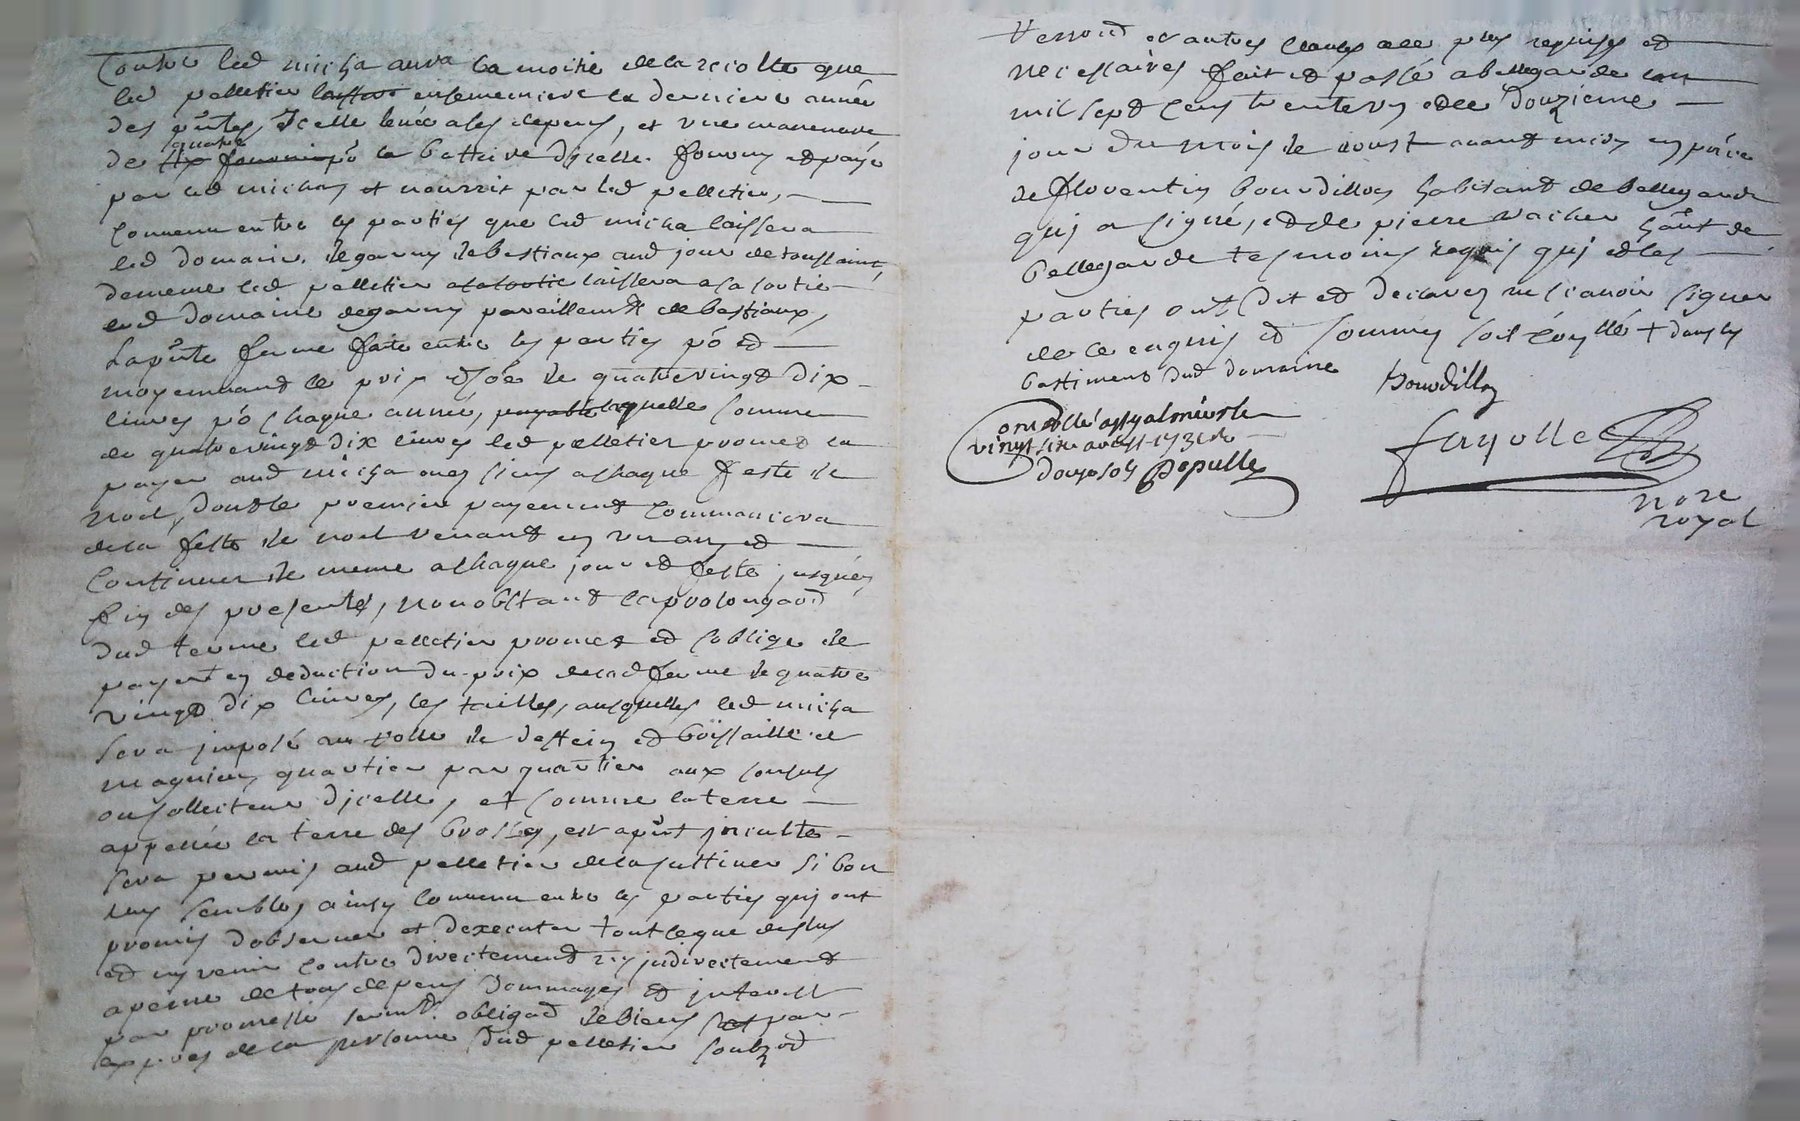 Contre led micha aura la moitié de la recolte que
led pelletier laissera ensemencere la derniere année
des pntes, Icelle levée a ses depens, et une manenuvre
de quatre six journaux po la battaire dicelle. fourny et payé
par led micha et nourrit par led pelletier,
Convenu entre les parties que led micha laissera
led domaine, degarny de bestiaux aud jour de toussaint,
de meme led pelletier a la sortie laissera a sa sortie
led domaine degarny pareillemt de bestiaux,
La pnte ferme faite entre les parties po et
moyennant le prix et soe de quatrevingt dix
livres po chaque année, payable laquelle somme
de quatrevingt dix livres led pelletier promet la
payer aud micha ou es siens a chaque feste de
noel, dont le premier payement commancera
de la feste de noel venant en un an, et
Continuer de meme a chaque jour et feste jusques
fin des presentes, nonobstant la prolongaon
dud terme led pelletier promet et soblige de
payer en deduction du prix de lad ferme de quatre
vingt dix livres, les tailles, ausquelles led micha
sera imposé au rolle de et
magnien, quartier par quartier aux consuls
ou collecteur dicelle, et comme la terre
appellée la terre des brosses, est a pnt inculte
sera permis aud pelletier de la cultiver si bon
luy semble, ainsy convenu entre les parties qui ont
promis dobserver et dexecuter tout ce que dessus
et ny venir contre directement ny indirectement
a peine de tous depens dommages et interest
par promesse sermt. obligaon de biens et par
expres de la personne dud pelletier soubzon
renonon et autres clauses a ce plus requises et
necessaires fait et passé a bellegarde lan
mil sept cens trente un et le douzieme
jour du mois de aoust avant midy en pnce
de florentin bourdillon habitant de bellegarde
qui a signé, et de pierre vacher habnt de
bellegarde tesmoins requis qui et les
parties ont dit et declarez ne scavoir signer
de ce enquis et sommés soit con llé + dans les
bastiments dud domaine
Bourdillon
con ollé a st galmier le
vingt six aoust 1731 Re
douze sols Populle
fayolle
nore
royal